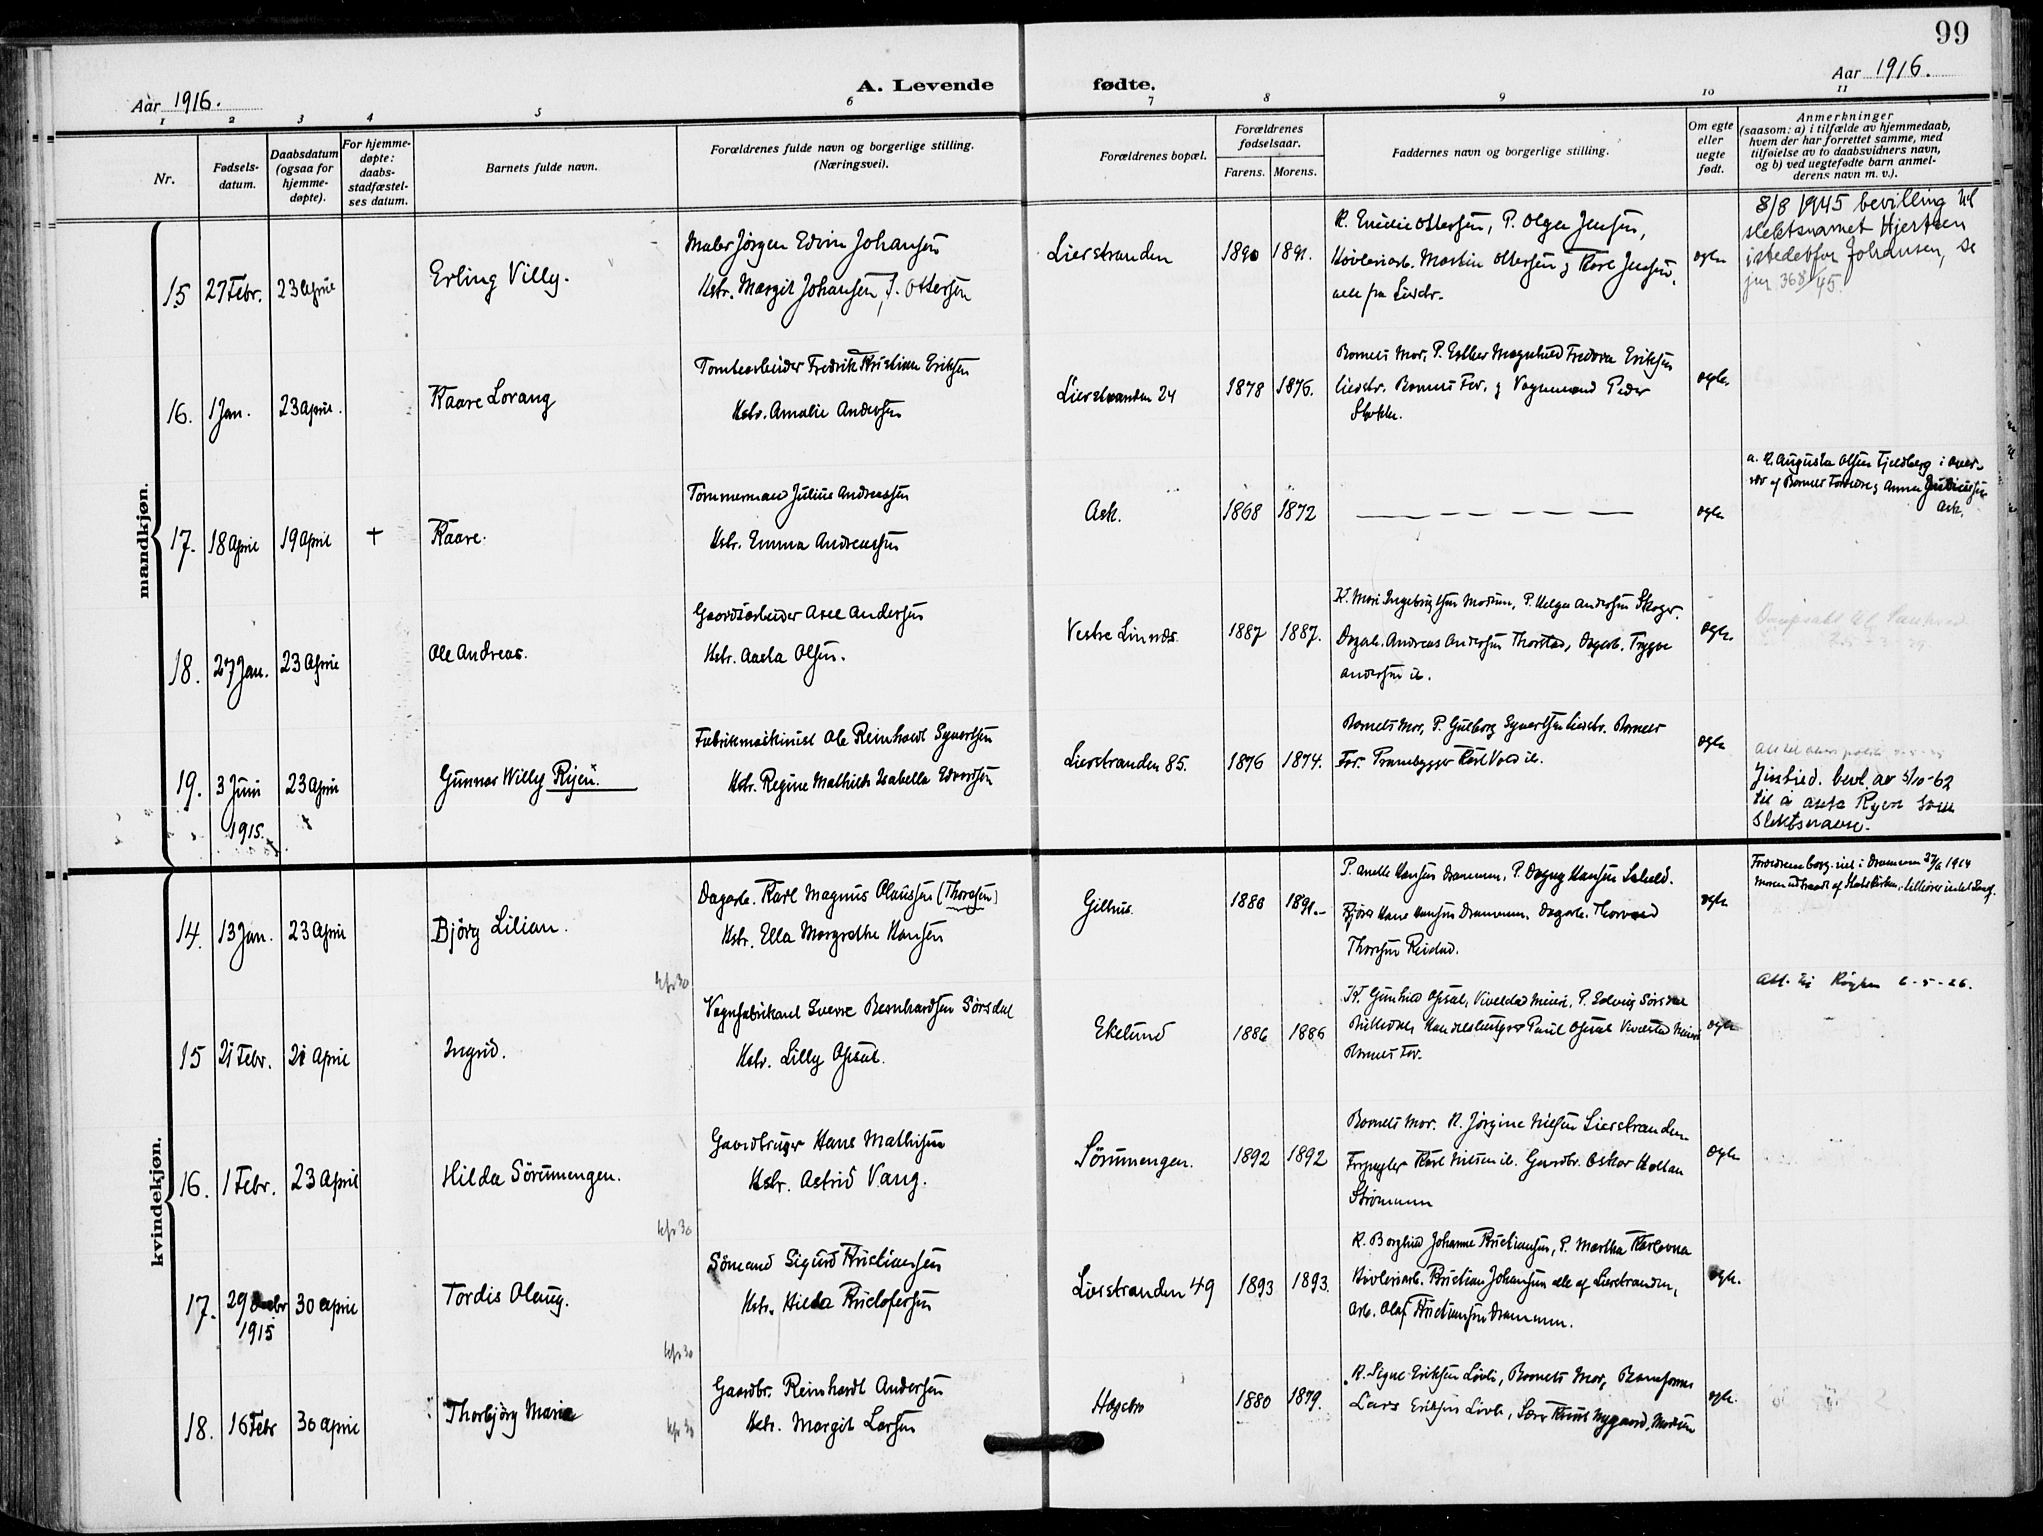 99
Aar 1916.
A. Levende fødte.
Aar 1916.
1 2 3 4 5 6 7 8 9 10 11
Nr.
Fødsels-
datum.
Daabsdatum
(ogsaa for
hjemme-
døpte).
For hjemme-
døpte:
daabs-
stadfæstel-
ses datum.
Barnets fulde navn.
Forældrenes fulde navn og borgerlige stilling.
(Næringsvei).
Forældrenes bopæl.
Forældrenes
fødselsaar.
Farens. Morens.
Faddernes navn og borgerlige stilling.
Om egte
eller
uegte
født.
Anmerkninger
(saasom: a) i tilfælde av hjemmedaab,
hvem der har forrettet samme, med
tilføielse av to daabsvidners navn,
og b) ved uegtefødte barn anmel-
derens navn m. v.).
mandkjøn.
15 27 Febr. 23 April Erling Villy.
Maler Jørgen Edvin Johansen
Hstr. Margit Johansen, f. Ottersen
Lierstranden 1890 1891.
K. Emilie Ottersen, P. Olga Jensen,
Høvleriarb. Martin Ottersen og Karl Jensen,
alle fra Lierstr.
egte
8/8 1945 bevilling til
slektsnamet Hjertøen
istedetfor Johansen, se
jnr. 368/45.
16. 1 Jan. 23 April. Kaare Lorang
Tomtearbeider Fredrik Kristian Eriksen
Hstr. Amalie Andersen
Lierstranden 24 1878 1876.
Barnets Mor, P. Esther Magnhild Fredova Eriksen
Lierstr. Barnets Far, og Vognmand Peder
egte.
17. 18 April 19 April + Kaare.
Tømmermand Julius Andreassen
Hstr. Emma Andreassen
Ask. 1868 1872
egte
a. K. Augusta Olsen Fjeldberg i over-
vær af Barnets Forældre og Anna
Ask.
18. 27 Jan. 23 April Ole Andreas.
Gaardsarbeider Axel Andersen
Hstr. Aasta Olsen.
Vestre Linnæs. 1887 1887.
K. Mari Ingebrigtsen Modum, P. Helga Andersen Skoger.
Dagarb. Andreas Andersen Thorstad, Dagarb. Trygve
Andersen ib.
egte.
19. 3 Juni 23 April Gunnar Willy Rijen.
1915.
Fabrikmaskinist Ole Reinhardt Syvertsen
Hstr. Regine Mathilde Isabella Edvardsen
Lierstranden 85. 1876 1874.
Barnets Mor, P. Gulborg Syvertsen Lierstr. Barnets
Far. Prambygger Karl Vold ib.
egte
Justisd. bevl. av 5/10-62
til å anta Ryen som
slektsnavn.
kvindekjøn.
14. 13 Jan. 23 April Bjørg Lilian.
Dagarb. Karl Magnus Claussen (Thoresen)
Hstr. Ella Margrethe Hansen
Gilhus 1886 1891.
P. Anette Hansen Drammen, P. Dagny Hansen
Hansen Drammen. Dagarb. Thorvald
Thoresen
egte
Forældrene borg. viet i Drammen 1914
Moren udtraadt af Statskirken,
kfr 30
15 21 Febr. 21 April Ingrid.
Vognfabrikant Sverre Bernhardsen Sørsdal
Hstr. Lilly Opsal.
Ekelund 1886 1886
Fr. Gunhild Opsal, P. Solveig Sørsdal
Paul Opsal
Barnets Far.
egte
Att. til Røyken 6-5-26.
16. 1 Febr. 23 April Hilda Sörumengen.
Gaardbruger Hans Mathisen
Hstr. Astrid Vang.
Sörumengen. 1892 1892
Barnets Mor. K. Jørgine Nielsen Lierstranden
Karl Nielsen ib. Gaardbr. Oskar
egte
kfr 30
17. 29 30 April Tordis Olaug.
1915
Sømand Sigurd Kristiansen
Hstr. Hilda Kristofersen
Lierstranden 49 1893 1893.
K. Borghild Johanne Kristiansen, P. Martha Karlovna
Høvleriarb. Kristian Johansen alle af Lierstranden,
Arb. Olaf Kristiansen Drammen.
egte.
kfr 30
18. 16 Febr 30 April Thorbjörg Marie
Gaardbr. Reinhardt Andersen
Hstr. Margit Larsen
Hægsbro 1880 1879.
K. Signe Eriksen Lövli, Barnets Mor,
Lars Eriksen Lövli, Modum
egte.
kfr 30